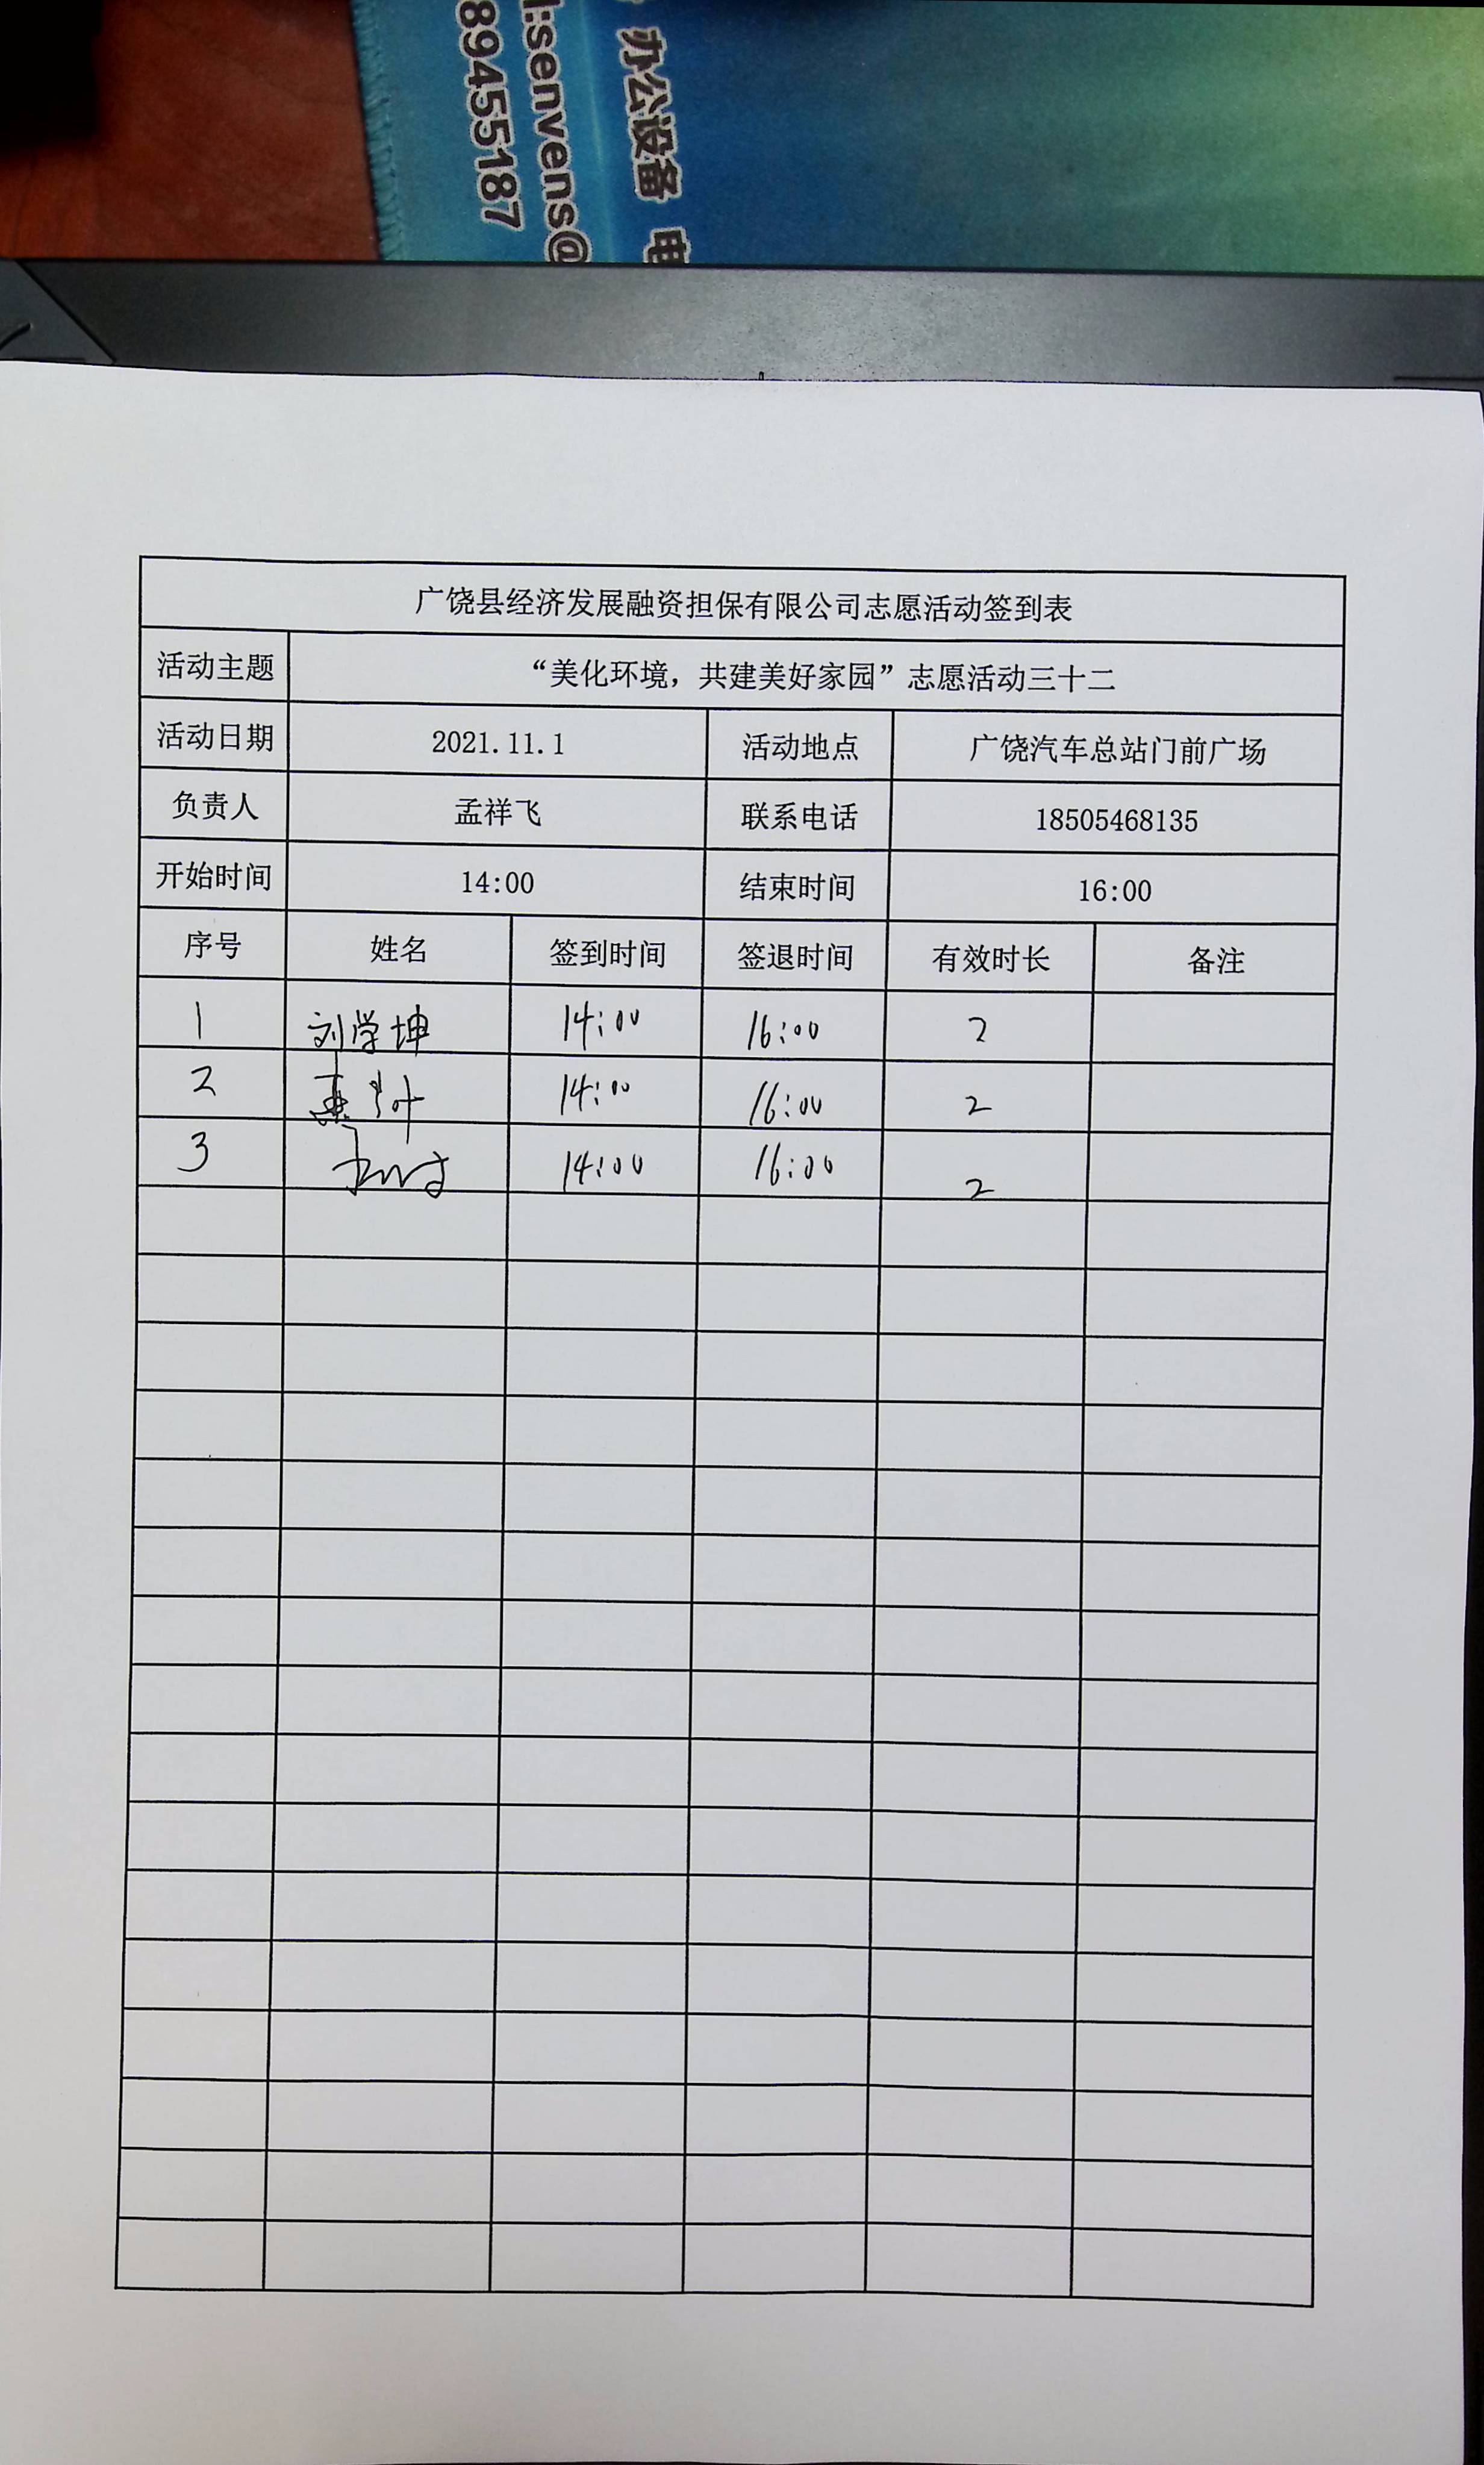 办公设备 电
l:senvens@
89455187
广饶县经济发展融资担保有限公司志愿活动签到表
活动主题 “美化环境，共建美好家园”志愿活动三十二
活动日期 2021.11.1 活动地点 广饶汽车总站门前广场
负责人 孟祥飞 联系电话 18505468135
开始时间 14:00 结束时间 16:00
序号 姓名 签到时间 签退时间 有效时长 备注
1 刘学坤 14:00 16:00 2
2 14:00 16:00 2
3 14:00 16:00 2